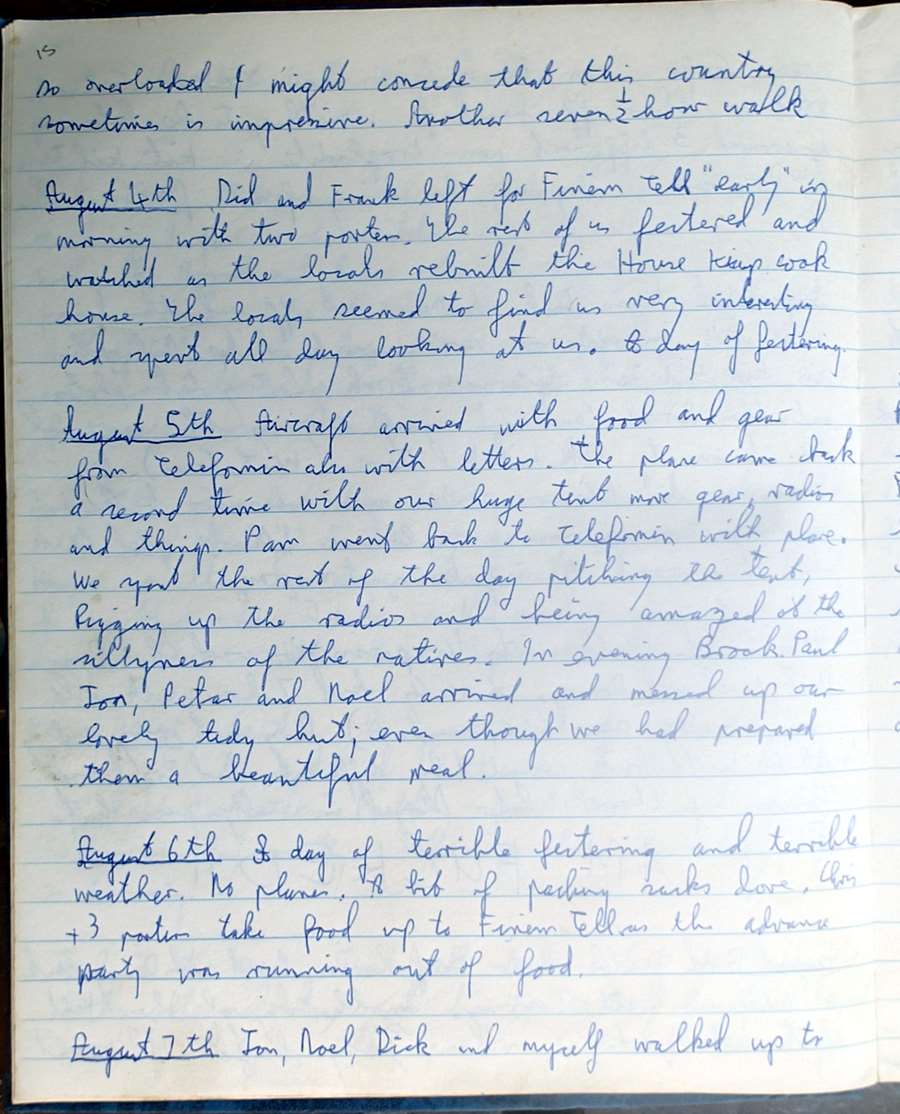 15
so overloaded I might concede that this country
sometimes is impressive. Another seven ½ hour walk
August 4th Did and Frank left for Finem Tell "early" in
morning with two porters. The rest of us festered and
watched as the locals rebuilt the House Kiap cook
house. The locals seemed to find us very interesting
and spent all day looking at us. A day of festering.
August 5th Aircraft arrived with food and gear
from Telefomin also with letters. The plane came back
a second time with our huge tent more gear, radios
and things. Pam went back to Telefomin with plane.
We spent the rest of the day pitching the tent,
Rigging up the radios and being amazed at the
sillyness of the natives. In evening Brook Paul
Jon, Petar and Noel arrived and messed up our
lovely tidy hut; even though we had prepared
them a beautiful meal.
August 6th A day of terrible festering and terrible
weather. No planes. A bit of packing sacks done. Chris
+ 3 porters take food up to Finem Tell as the advance
party was running out of food.
August 7th Jon, Noel, Dick and myself walked up to